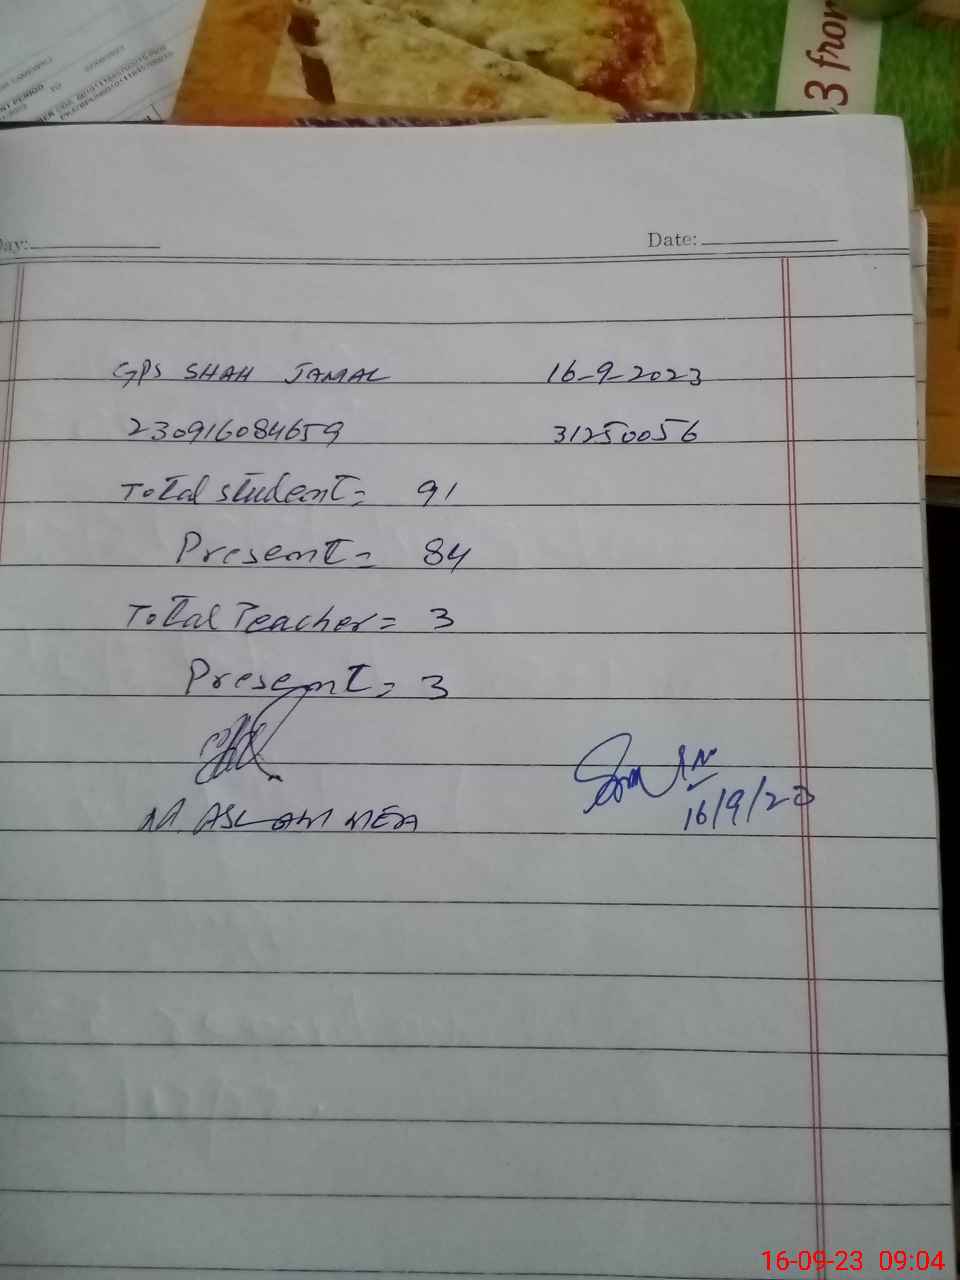 3 from
Day:
Date:
GPS SHAH JAMAL 16-9-2023
230916084659 31250056
Total student = 91
Present = 84
Total Teacher = 3
Present = 3
M. ASLAM
16/9/23
16-09-23 09:04